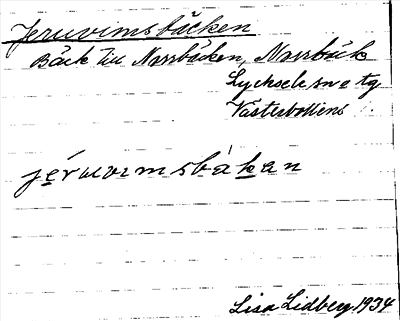 Jeruvimsbäcken
Bäck till Norrbäcken, Norrbäck
Lycksele sn o tg
Västerbottens
jéruvimsbäkan
Lisa Lidberg 1934